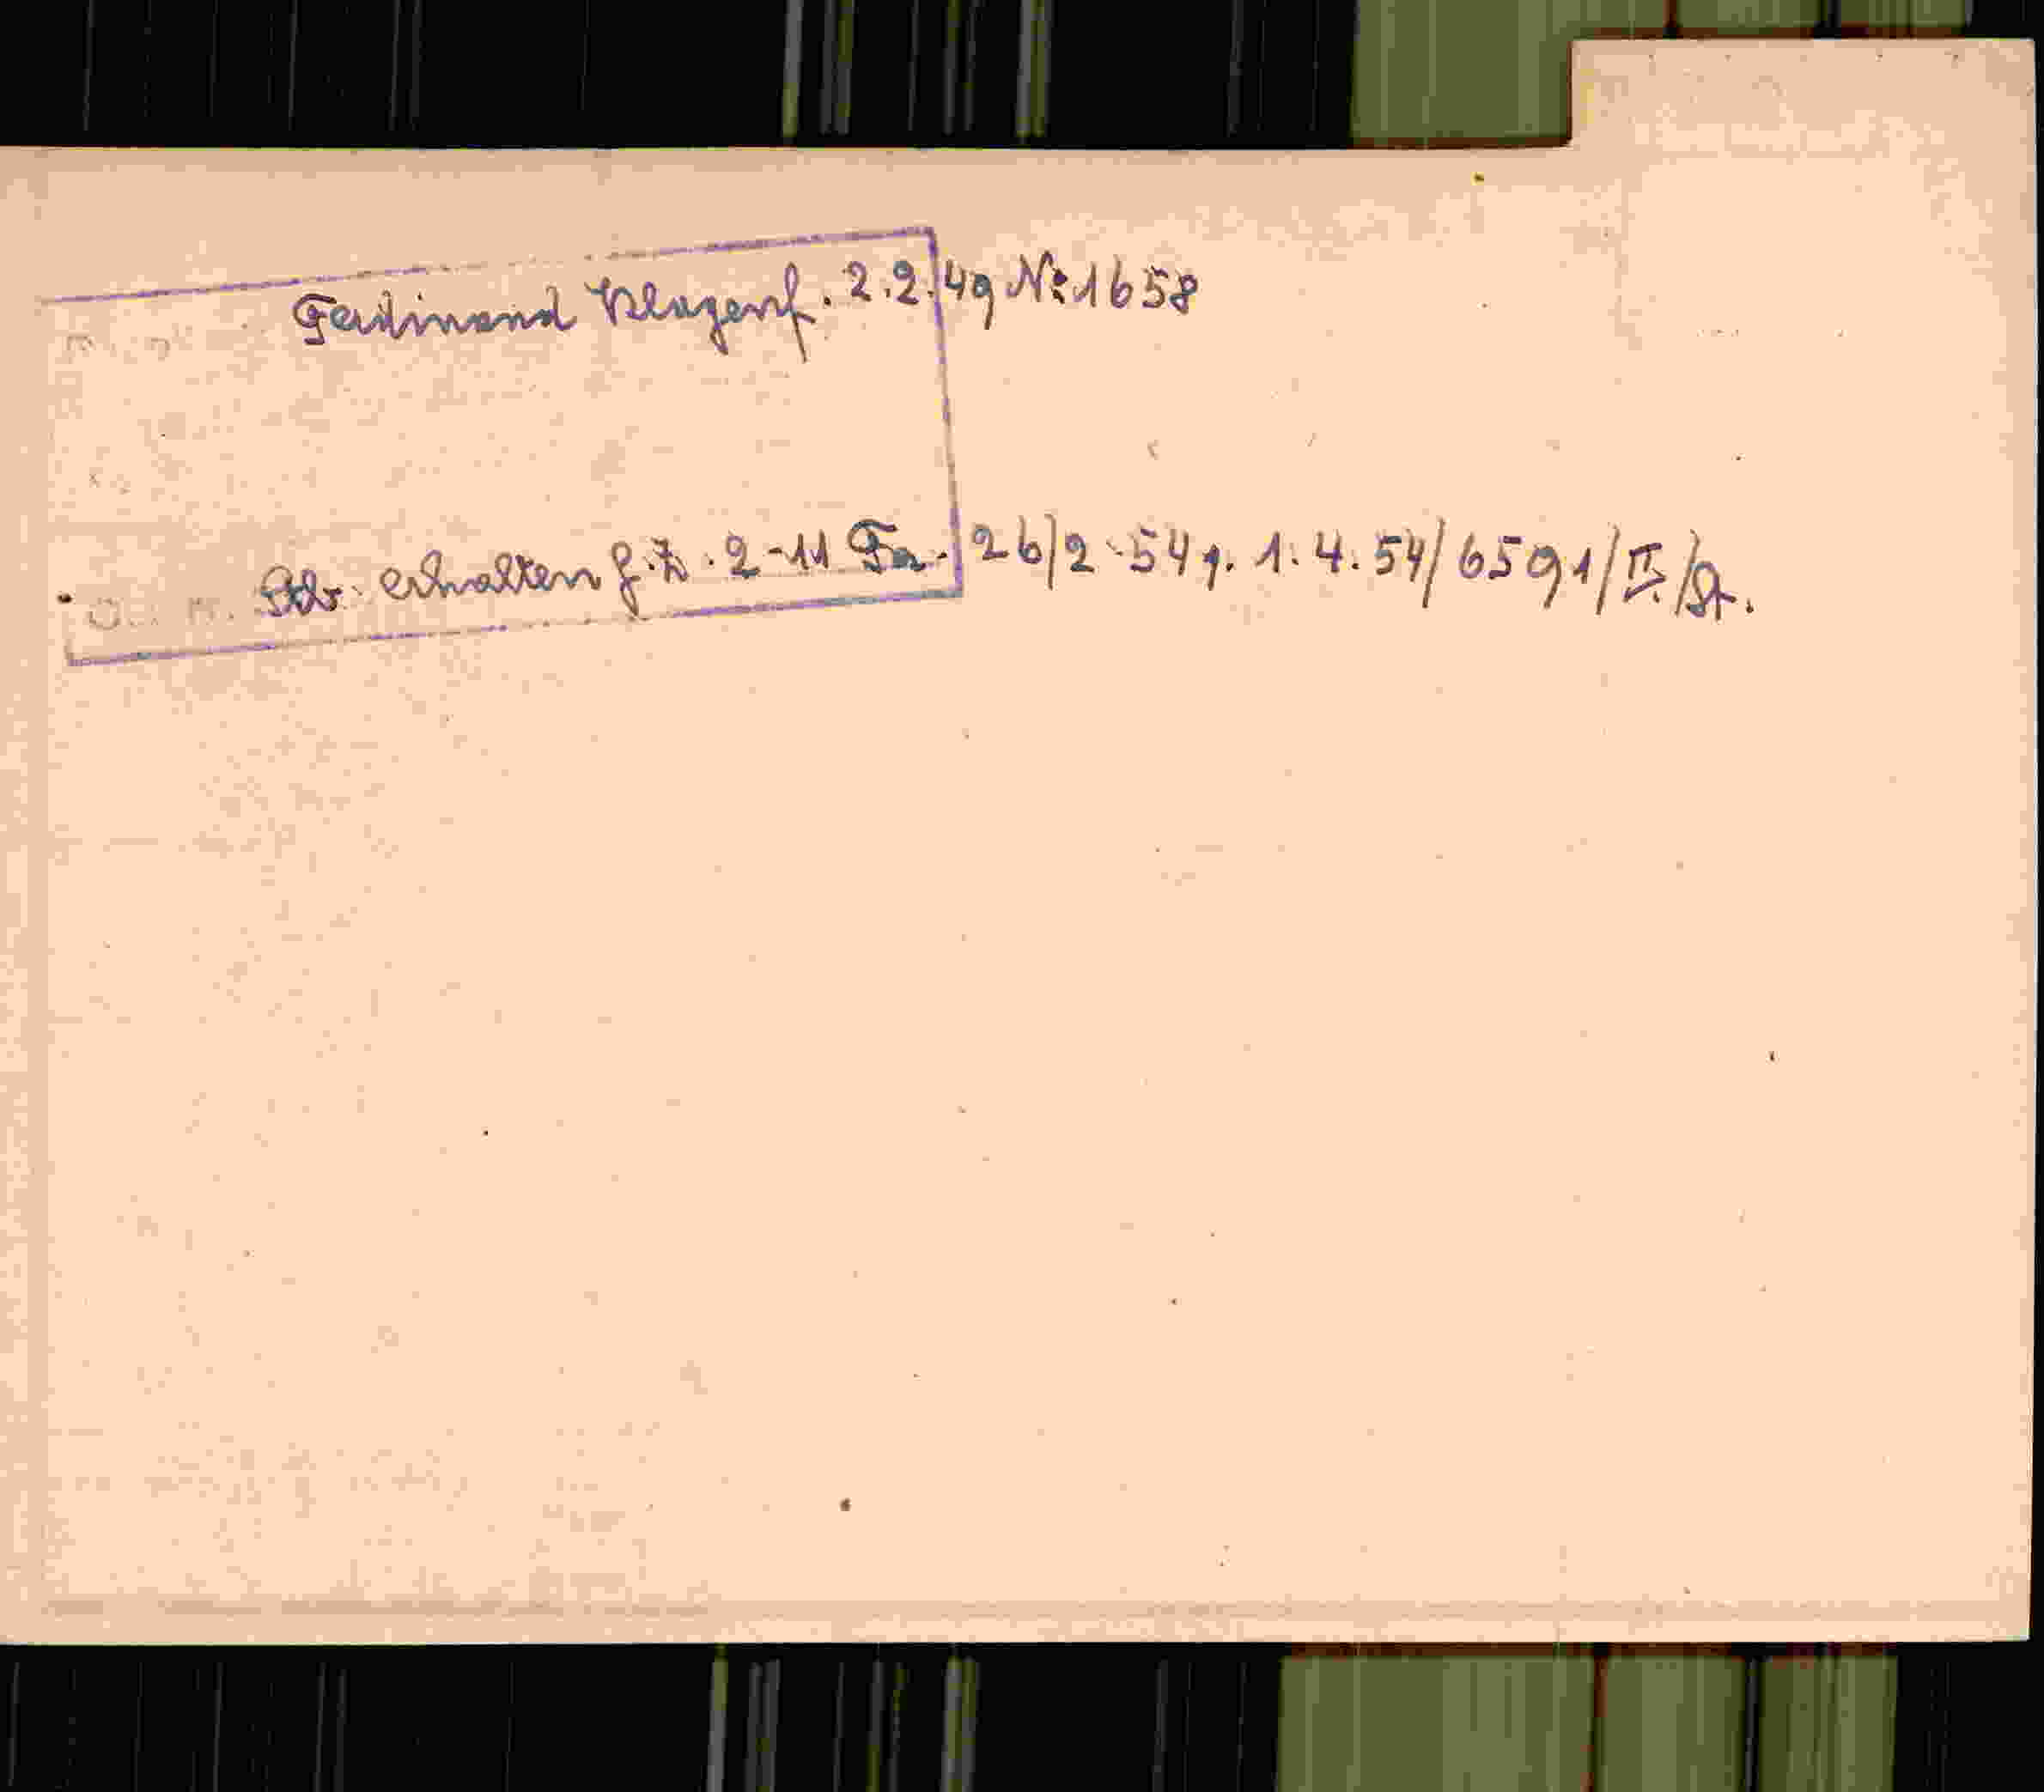 Ferdinand Klagenf. 2.2.49 No 1658
erhalten f. Z. 2-11 Fa. 26/2.54 1.4.54/6591/II./St.